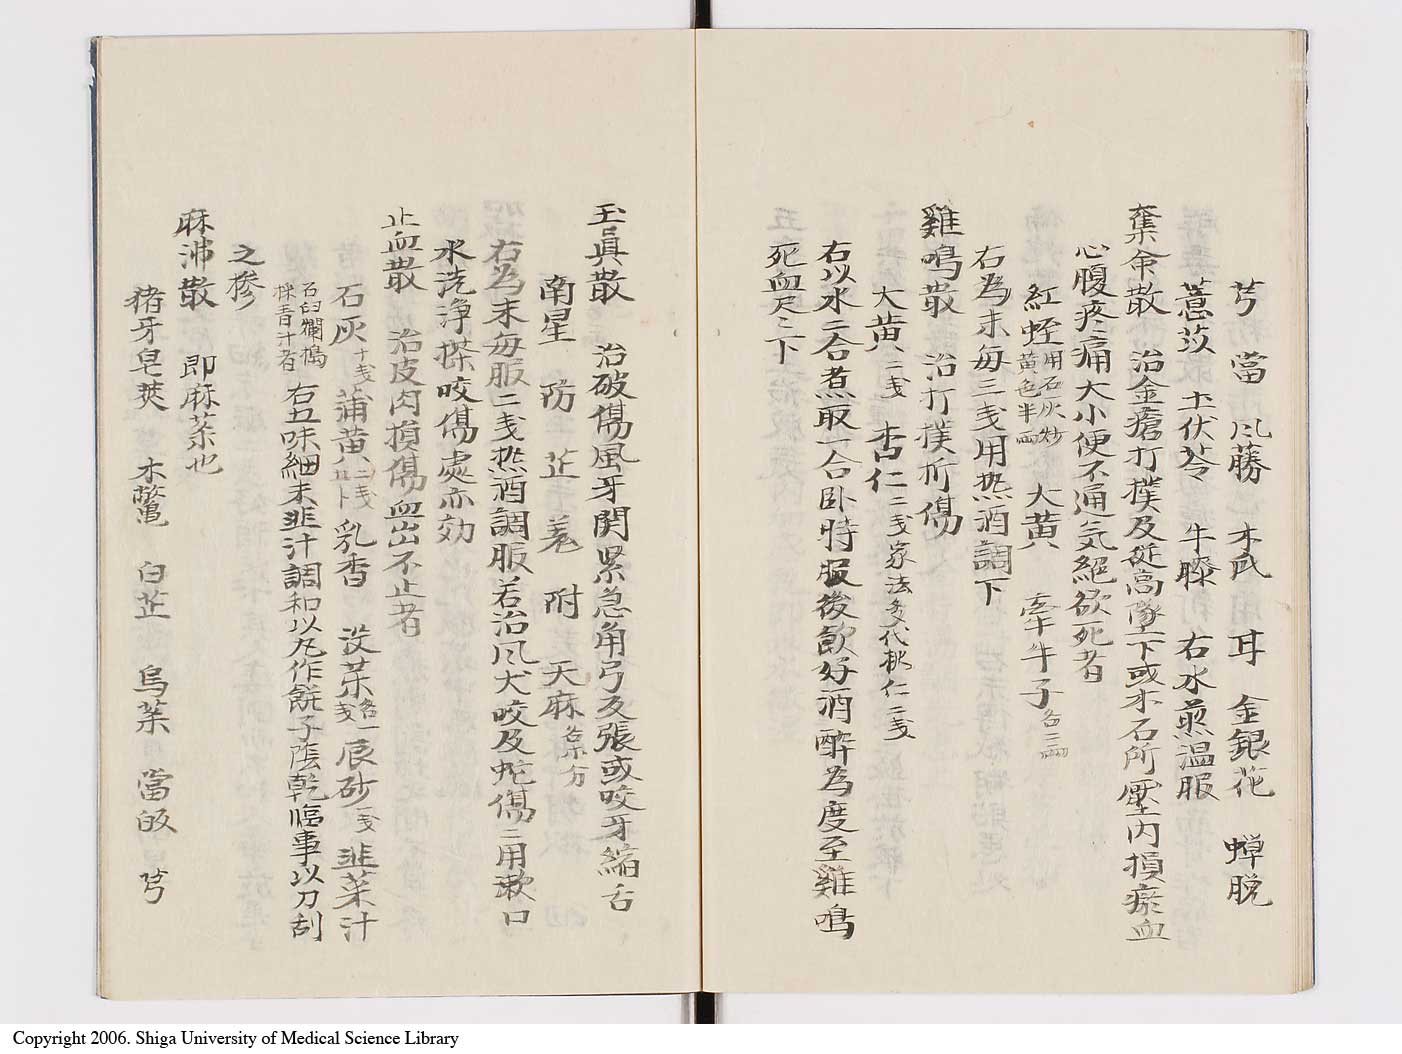 芎 當 风藤 木瓜 耳 金銀花 蝉脱
薏苡 土伏苓 牛膝 右水煎温服
奪命散 治金瘡打撲及従高墜下或木石所壓内損瘀血
心腹疼痛大小便不通気絕欲死者
紅蛭 用石灰炒黄色半両 大黄 牽牛子 各二両
右為末每三戔用热酒調下
雞鳴散 治打撲折傷
大黄 一戔 杏仁 二戔家法多代桃仁二戔
右以水二合煮取一合卧時服後飲好酒醉為度至雞鳴
死血尽々下
玉真散 治破傷風牙関累急角弓反張或咬牙縮舌
南星 防 芷 羌 附 天麻 各等分
右為末每服二戔热酒調服若治风犬咬及蛇傷二用漱口
水洗浄搽咬傷處亦効
止血散 治皮肉損傷血出不止者
石灰 十戔 蒲黄 二戔五卜 乳香 没茱 各一戔 辰砂 一戔 韭菜汁
石臼爛搗採青汁者 右五味細末韭汁調和以丸作餅子陰乾臨事以刀刮
之掺
麻沸散 即麻茱也
猪牙皂莢 木鱉 白芷 烏茱 當皈 芎
Copyright 2006. Shiga University of Medical Science Library